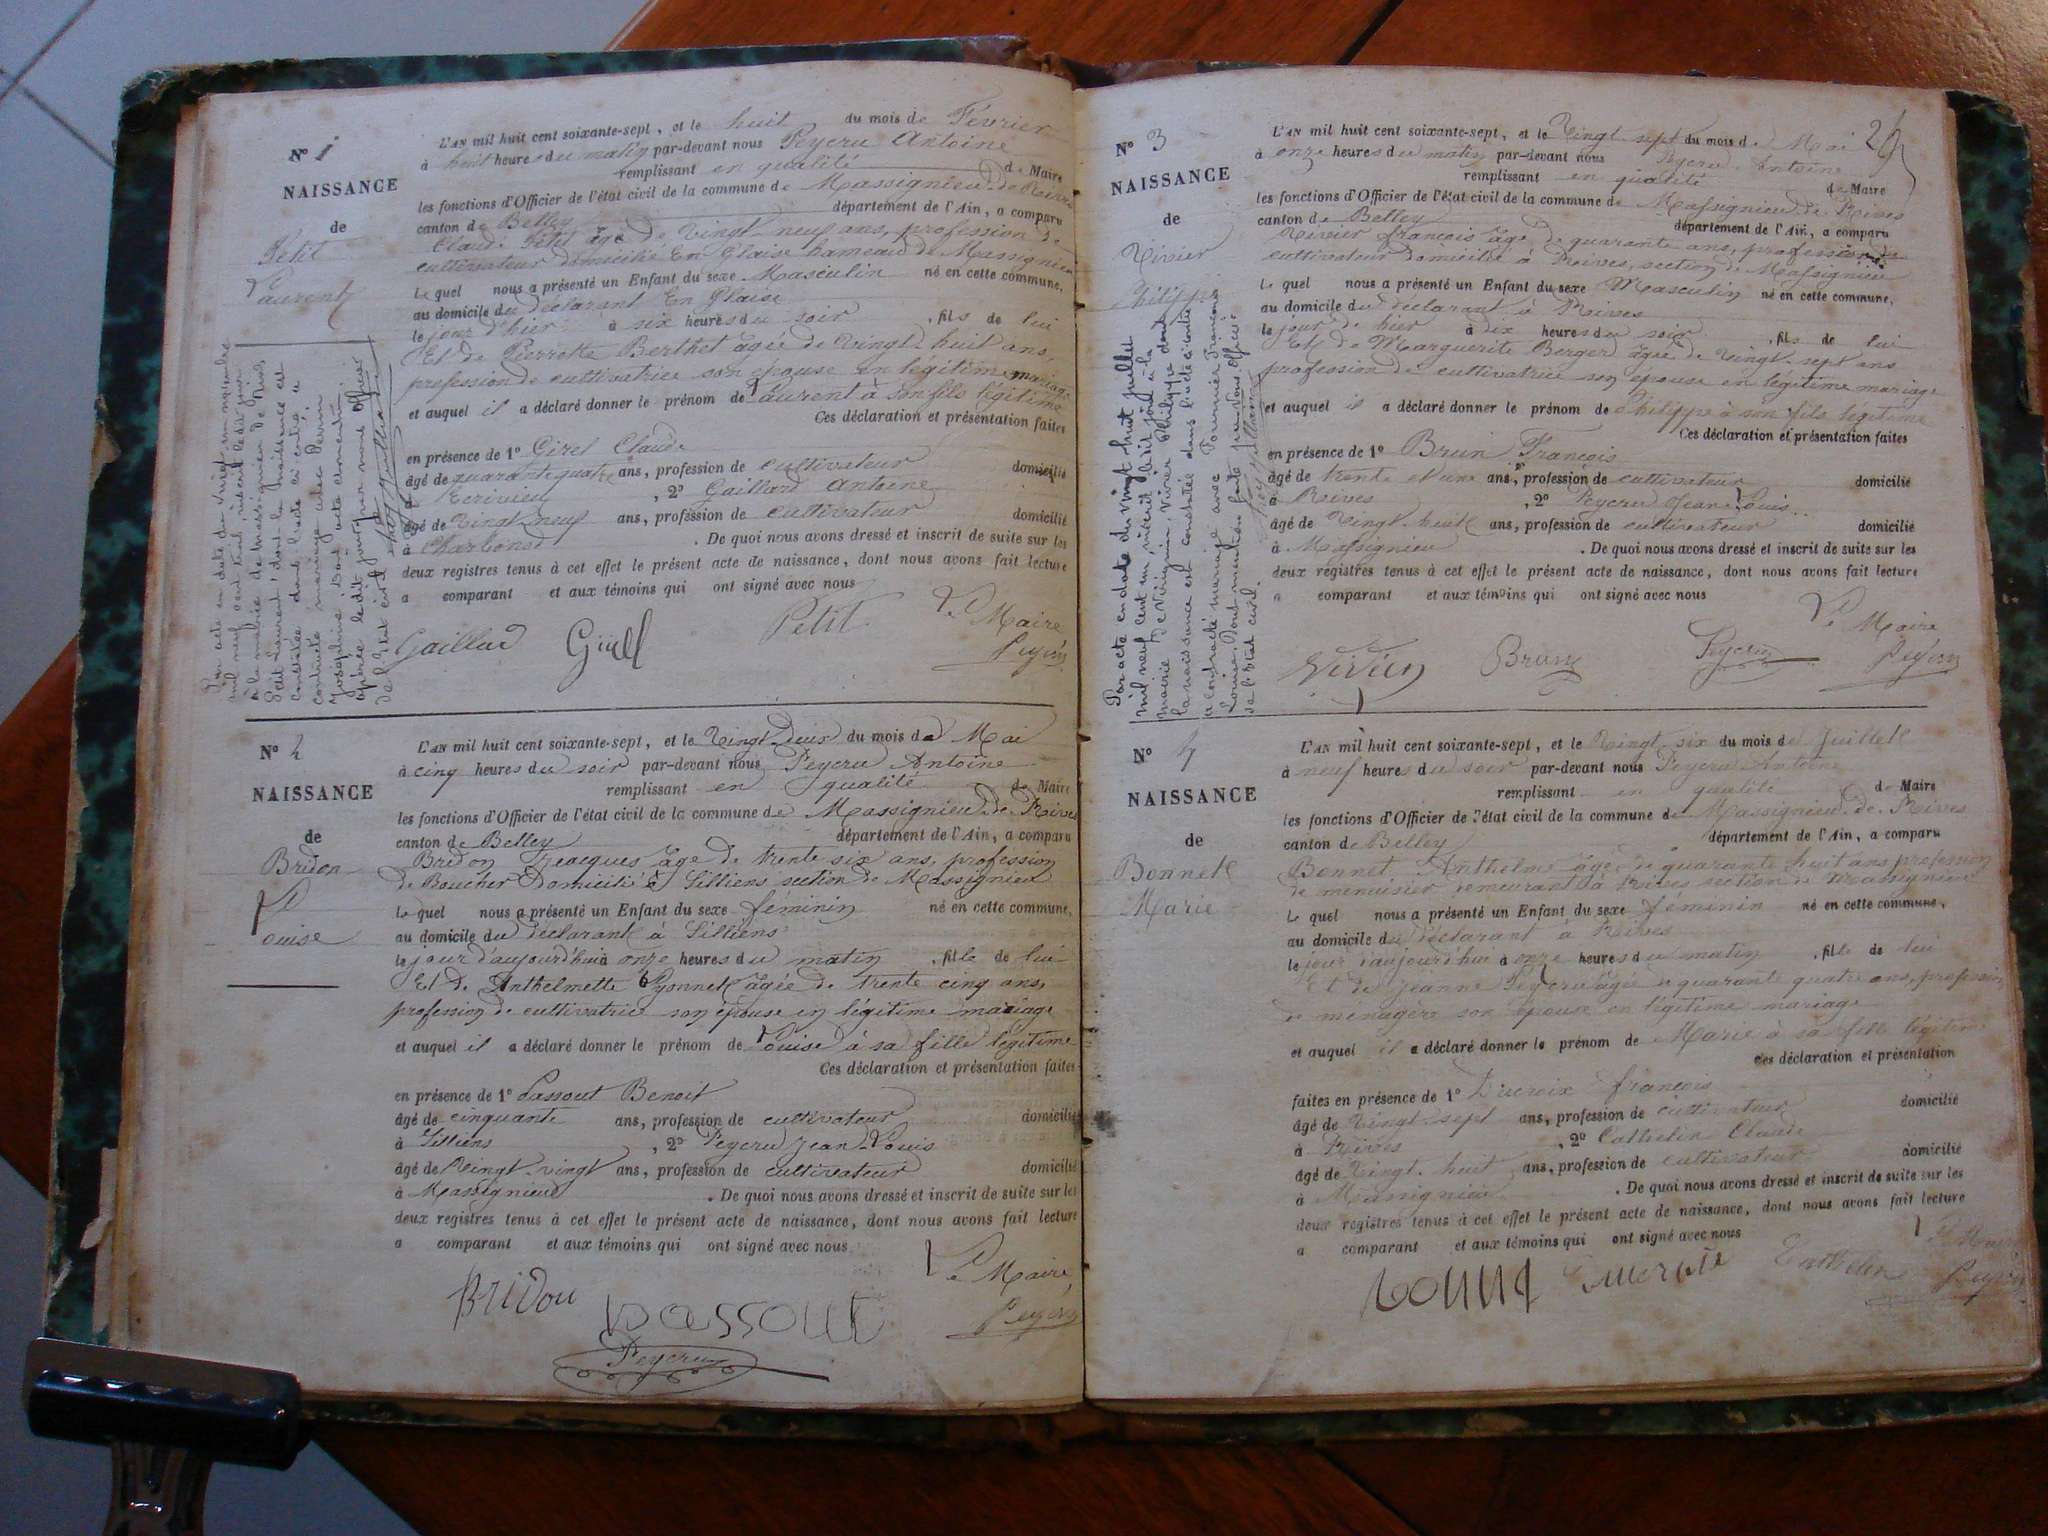 N° 1
NAISSANCE
de
Petit
Laurent
L'AN mil huit cent soixante-sept, et le huit du mois de Février
à huit heures du matin par-devant nous Peycru Antoine
remplissant en qualité de Maire
les fonctions d'Officier de l'état civil de la commune de Massignieu de Rives
canton de Belley département de l'Ain, a comparu
Claude Petit âgé de vingt neuf ans, profession de
cultivateur domicilié En Glaise hameau de Massignieu
Lequel nous a présenté un Enfant du sexe Masculin né en cette commune,
au domicile du déclarant En Glaise
le jour d'hier à six heures du soir, fils de lui
Et de Pierrette Berthet âgée de vingt huit ans,
profession de cultivatrice son épouse en légitime mariage
et auquel il a déclaré donner le prénom de Laurent à son fils légitime
Ces déclaration et présentation faites
en présence de 1° Claude
âgé de quarante quatre ans, profession de cultivateur domicilié
à Ecrivieu, 2° Gaillard Antoine
âgé de vingt neuf ans, profession de cultivateur domicilié
à Charbonod. De quoi nous avons dressé et inscrit de suite sur les
deux registres tenus à cet effet le présent acte de naissance, dont nous avons fait lecture
a comparant et aux témoins qui ont signé avec nous
Le Maire
Gaillard Petit
Par acte en date du novembre
mil neuf cent inscrit le dit jour
à la mairie de Massignieu de Rives
Petit Laurent, dont la naissance est
constatée dans l'acte ci contre, a
contracté mariage avec Perrin
Joséphine, Dont acte et mention
opérée le dit jour par nous officier
de l'Etat civil
N° 2
NAISSANCE
de
Bridon
Louise
L'AN mil huit cent soixante-sept, et le vingt deux du mois de Mai
à cinq heures du soir par-devant nous Peycru Antoine
remplissant en qualité de Maire
les fonctions d'Officier de l'état civil de la commune de Massignieu de Rives
canton de Belley département de l'Ain, a comparu
Bridon Jeacques âgé de trente six ans, profession
de Boucher Domicilié à Silliens section de Massignieu
Lequel nous a présenté un Enfant du sexe feminin né en cette commune,
au domicile du déclarant à Silliens
le jour d'aujourd'hui à onze heures du matin, fille de lui
Et de Anthelmette Pyonnet âgée de trente cinq ans,
profession de cultivatrice son épouse en légitime mariage
et auquel il a déclaré donner le prénom de Louise à sa fille légitime
Ces déclaration et présentation faites
en présence de 1° Passout Benoit
âgé de cinquante ans, profession de cultivateur domicilié
à Silliens, 2° Peycru Jean Louis
âgé de vingt vingt ans, profession de cultivateur domicilié
à Massignieu. De quoi nous avons dressé et inscrit de suite sur les
deux registres tenus à cet effet le présent acte de naissance, dont nous avons fait lecture
a comparant et aux témoins qui ont signé avec nous
Le Maire
BRIDON Passout
Peycru
N° 3
NAISSANCE
de
Vivier
Philippe
L'AN mil huit cent soixante-sept, et le vingt sept du mois de Mai
à onze heures du matin par-devant nous Peycru Antoine
remplissant en qualité de Maire
les fonctions d'Officier de l'état civil de la commune de Massignieu de Rives
canton de Belley département de l'Ain, a comparu
Vivier françois âgé de quarante ans, profession de
cultivateur domicilié à Reives, section de Massignieu
Lequel nous a présenté un Enfant du sexe Masculin né en cette commune,
au domicile du déclarant à Reives
le jour de hier à dix heures du soir, fils de lui
Et de Marguerite Berger âgée de vingt sept ans
profession de cultivatrice son épouse en légitime mariage
et auquel il a déclaré donner le prénom de Philippe à son fils légitime
Ces déclaration et présentation faites
en présence de 1° Brun François
âgé de trente et une ans, profession de cultivateur domicilié
à Reives, 2° Peycru Jean Louis
âgé de vingt huit ans, profession de cultivateur domicilié
à Massignieu. De quoi nous avons dressé et inscrit de suite sur les
deux registres tenus à cet effet le présent acte de naissance, dont nous avons fait lecture
a comparant et aux témoins qui ont signé avec nous
Le Maire
Brun Peycru
Par acte en date du vingt huit juillet
mil neuf cent un inscrit le dit jour à la
mairie de Virignin, Vivier Philippe dont
la naissance est constatée dans l'acte ci contre
a contracté mariage avec Fournier Françoise
Louise, Dont mention faite par Nous Officier
de l'état civil.
N° 4
NAISSANCE
de
Bonnett
Marie
L'AN mil huit cent soixante-sept, et le vingt six du mois de Juillett
à neuf heures du soir par-devant nous Peycru Antoine
remplissant en qualité de Maire
les fonctions d'Officier de l'état civil de la commune de Massignieu de Reives
canton de Belley département de l'Ain, a comparu
Bonnet Anthelme âgé de quarante huit ans profession
de menuisier demeurant à Reives section de Massignieu
Lequel nous a présenté un Enfant du sexe feminin né en cette commune,
au domicile du déclarant à Reives
le jour d'aujourd'hui à onze heures du matin, fille de lui
Et de Jeanne Peycru âgée de quarante quatre ans, profession
de ménagère son épouse en légitime mariage
et auquel il a déclaré donner le prénom de Marie à sa fille légitime
Ces déclaration et présentation
faites en présence de 1° Ducroix françois
âgé de vingt sept ans, profession de cultivateur domicilié
à Reives, 2° Cathelin Claude
âgé de vingt huit ans, profession de cultivateur domicilié
à Massignieu. De quoi nous avons dressé et inscrit de suite sur les
deux registres tenus à cet effet le présent acte de naissance, dont nous avons fait lecture
a comparant et aux témoins qui ont signé avec nous
Le Maire
Cathelin